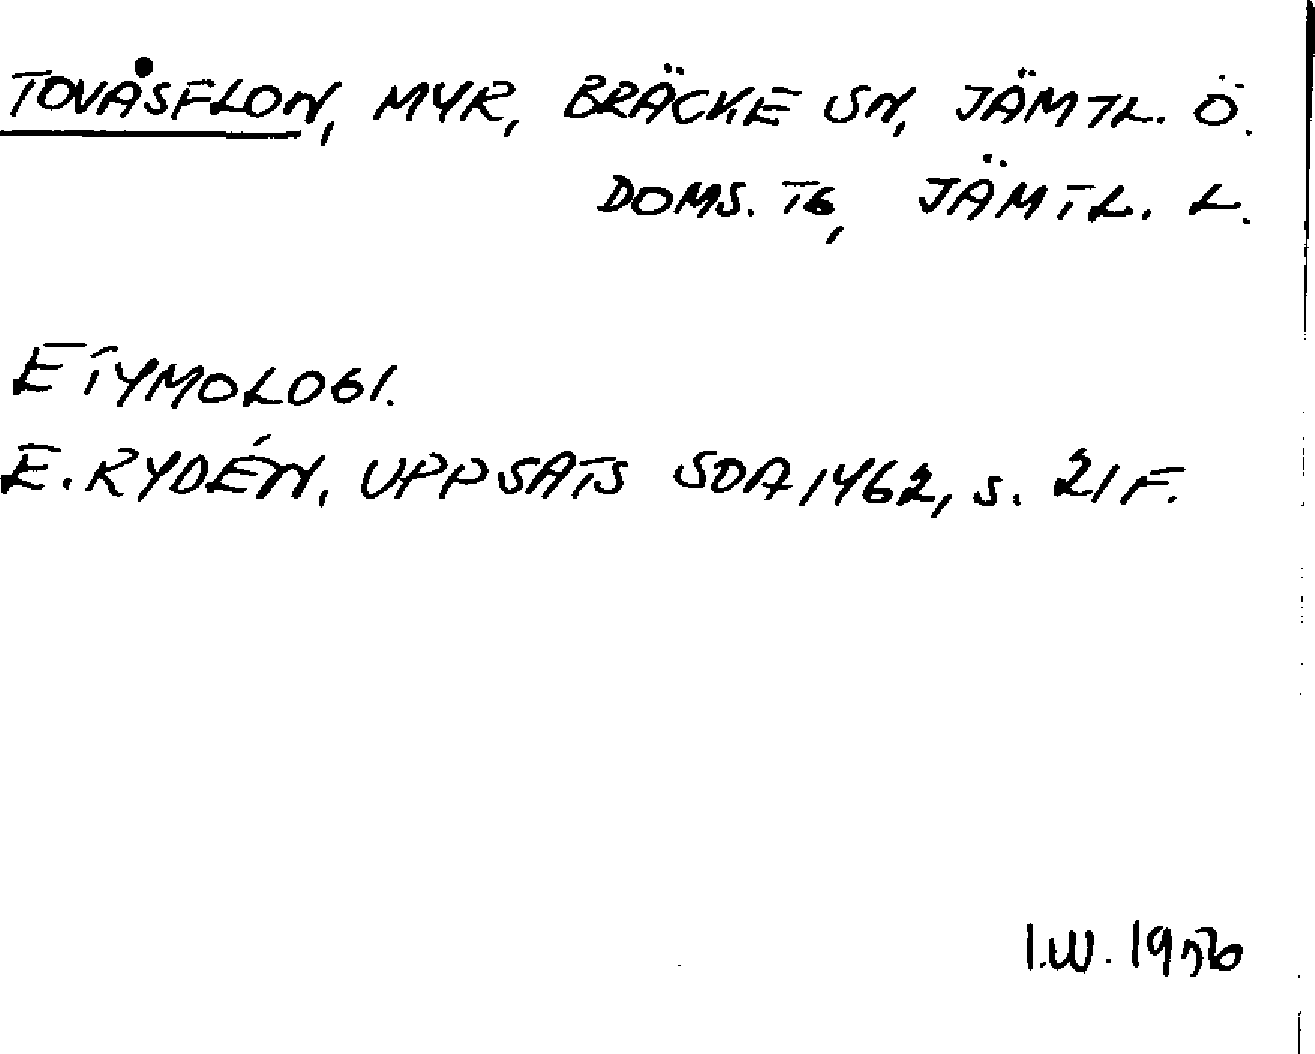 TOVÅSFLON, MYR, BRÄCKE SN, JÄMTL. Ö.
DOMS. TG, JÄMTL. L.
ETYMOLOGI.
E. RYDÉN, UPPSATS SOA 1462, S. 21 F.
I.W.